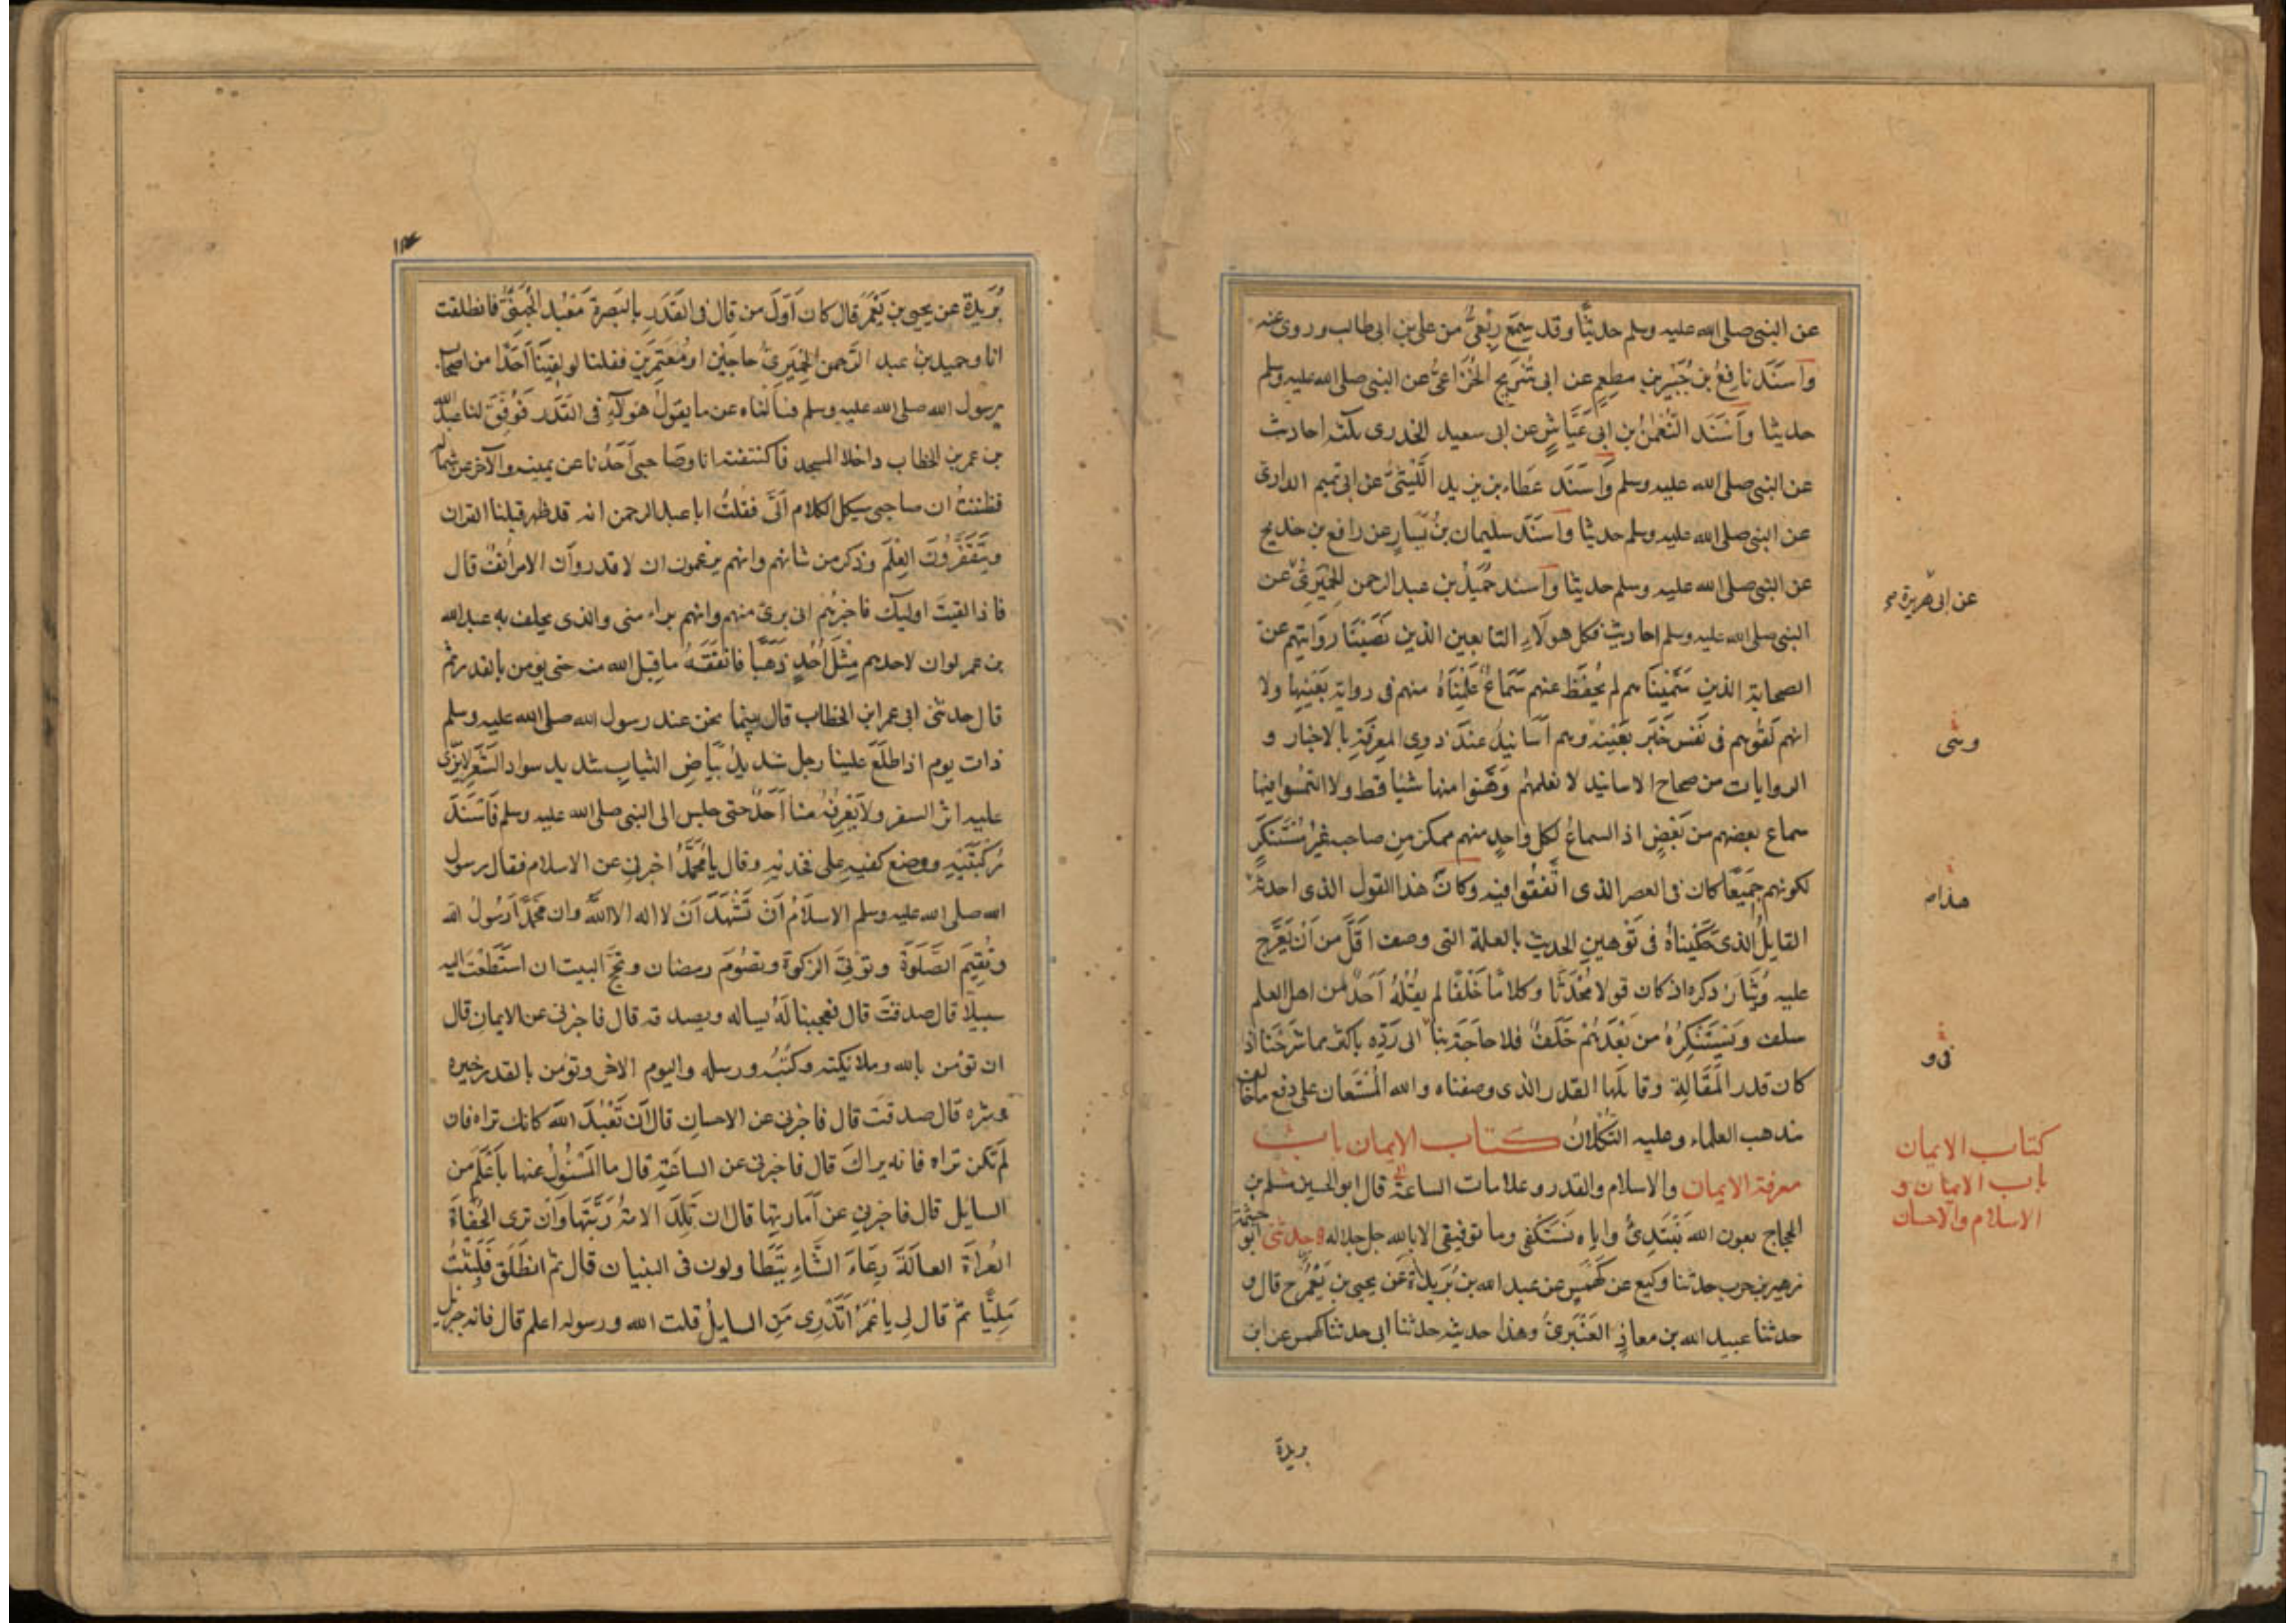 عن النبى صلى الله عليه وسلم حديثًا وقد سمع رِبْعِىٌّ من على بن ابى طالب وروى عنه
وَاَسنَدَ نافِعُ بن جُبَيرِ بنِ مطعِمٍ عن ابى شُرَيحٍ الخُزَاعىِّ عن النبى صلى الله عليه وسلم
حديثا وَاَسْنَدَ النُّعْمٰنُ بن ابى عَيَّاشٍ عن ابى سعيد الخدرى ثلثة احاديث
عن النبى صلى الله عليه وسلم وَاَسنَدَ عَطَاء بن يزيد اللَّيثىُّ عن تميم الدارى
عن النبى صلى الله عليه وسلم حديثا وَاَسنَدَ سليمان بنُ يَسَارٍ عن رافع بن خديج
عن النبى صلى الله عليه وسلم حديثا وَاَسند حُمَيْدُ بن عبد الرحمن الحِمْيَرِىُّ عن
النبى صلى الله عليه وسلم احاديث فكل هولَاءِ التابعين الذين نَصَبْنَا رِوَايتهم عن
الصحابة الذين سَمَّينَا هم لم يُحْفَظْ عنهم سَمَاعٌ عَلِمْنَاهُ منهم فى رواية بِعَيْنِها ولا
انهم لَقُوهم فى نَفْسِ خَبَرٍ بعَيْنِه وهم اَسَانِيدُ عندَ ذوِى المعرِفَةِ بالاخبار و
الروايات من صحاح الاسانيد لا نعلمهُم وَهَّنوا منها شيْا قط ولا التَمسُوا فيها
سماع بعضهم من بَعْضٍ اذ السماعُ لكل واحِدٍ منهم ممكن من صاحبه غيرُ مُسْتَنكَرٍ
لكونهم جَمِيعًا كان فى العصر الذى اتَّفَقُوا فيه وكانَ هذا القول الذى احدثه
القايلُ الذى حَكَيْناهُ فى تَوْهينِ الحديث بالعلة التى وصف اقَلَّ من اَنْ يُعَرَّج
عليه وَيُثَارَ ذكره اذ كان قولا مُحْدَثًا وكلامًا خَلْفًا لم يقُلْهُ اَحَدٌ من اهل العلم
سلف وَيَسْتَنكِرُهُ من بَعْدَهُمْ خَلَفٌ فلا حاجَةَ بِنَا الى رَدِّه باكثر مما شَرَحْنَا اذ
كان قدر المَقَالَةِ وقايلَها القدر الذى وصفناه والله الْمُسْتَعان على دفع ما خالف
مذهب العلماء وعليه التُّكْلَانُ كتاب الايمان باب
معرفة الايمان والاسلام والقدر وعلامات الساعة قال ابو الحسين مسلم بن
الحجاج بعون الله نَبْتَدِئُ واياه نستَكْفى وما توفيقى الا بالله جل جلاله حدثنى ابو خيثمة
زهير بن حرب حدثنا وكيع عن كَهْمَسٍ عن عبد الله بن بُرَيدَةَ عَن يحيى بن يَعْمُرَ ح قال و
حدثنا عبيد الله بن معاذٍ العَنْبَرىُّ وهذا حديثه حدثنا ابى حدثنا كهمس عن ابن
بريدة
عن ابى هريرة صح
وشى
هذاه
فى و
كتاب الايمان
باب الايمان و
الاسلام والاحسان
بُرَيدة عن يحيى بن يَعْمُرَ قال كان اَوَّلَ من قال فى القَدَرِ بالبَصرة مَعْبَد الجُهَنِىُّ فانطلقت
انا وحميد بن عبد الرَّحمن الحِميَرِىُّ حاجَّيْنِ او مُعْتَمِرَينِ فقلنا لو لَقِيْنَا اَحَدًا من اصحاب
رسول الله صلى الله عليه وسلم فسألناه عن ما يقولُ هَولَآءِ فى القَدَر فَوُفِّقَ لنا عبد الله
بن عمر بن الخطاب داخلا المسجد فاكتنفته انا وصَاحبى اَحَدُنا عن يمينه والآخر عن شماله
فظننتُ ان صاحبى سيكل الكلام اِلَىَّ فقلتُ ابا عبد الرحمن انه قد ظهر قبلنا القران
ويَتَقَفَّرُونَ العِلْمَ وذكر من شانهم وانهم يزعمون ان لا قدر واَن الامر اُنُفٌ قال
فاذا لقيتَ اوليٓك فاخبِرْهُم انى برئ منهم وانهم براء منى والذى يحلف به عبد الله
بن عمر لو ان لاحدهم مِثلَ اُحُدٍ ذَهَبًا فانفَقَهُ ما قبل الله منه حتى يؤمن بالقدر ثم
قال حدثنى ابى عمر ابن الخطاب قال بينما نحن عند رسول الله صلى الله عليه وسلم
ذات يوم اذ اطلَعَ علينا رجل شديدُ بَيَاضِ الثيابِ شديد سواد الشَعَرِ لا يُرَى
عليه اثر السفر ولا يَعْرِفُهُ مِنا اَحَدٌ حتى جلس الى النبى صلى الله عليه وسلم فَاَسْنَدَ
رُكبَتَيْهِ ووضع كفيهِ على فخذيهِ وقال يا مُحَمَّدُ اخبرنى عن الاسلام فقال رسول
الله صلى الله عليه وسلم الاسلَامُ اَنْ تَشْهَدَ اَنْ لا اله الا اللهُ وان مُحَمَّدًا رَسُولُ الله
وتُقِيمَ الصَّلوةَ وتؤتِىَ الزكوة وتصُومَ رمضان وتحجَّ البيت ان استَطَعْتَ اليه
سبيلًا قال صدقتَ قال فعجبنا لَهُ يساله ويصدقه قال فاخبرنى عن الايمانِ قال
ان تؤمن بالله وملائكته وكُتُبِه ورسله واليوم الاخر وتؤمن بالقدر خيره
وشره قال صدقتَ قال فاخبرنى عن الاحسان قال اَن تَعْبُدَ اللهَ كانك تراه فان
لَم تكن تراه فانه يراكَ قال فاخبرنى عن الساعَةِ قال ما المَسْئُولُ عنها باَعْلَمَ من
السايل قال فاخبرنى عن اَماريتها قال ان تَلِدَ الامةُ رَبَّتَها وَاَنْ ترى الحُفَاةَ
العُراةَ العالَةَ رِعَاءَ الشَّاءِ يَتَطاولون فى البنيان قال ثم انطَلَقَ فَلَبِثْتُ
مَلِيًّا ثمَّ قال لى يا عُمَرُ اَتَدْرِى مَنِ السايلُ قلت الله ورسوله اعلم قال فانه جبرئيل